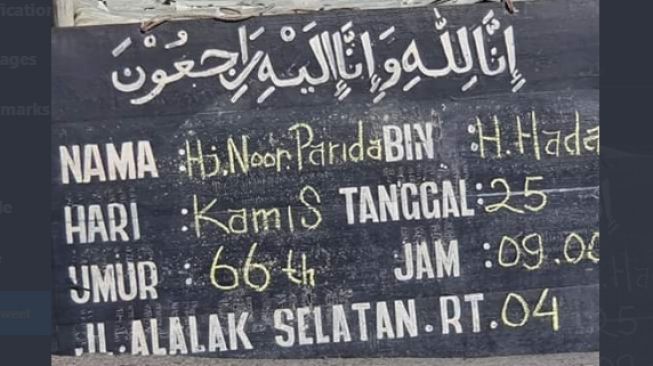 إِنَّا لِلّٰهِ وَإِنَّا إِلَيْهِ رَاجِعُوْنَ
NAMA : Hj. Noor Parida BIN : H. Hada
HARI : Kamis TANGGAL : 25
UMUR : 66 th JAM : 09.00
JL. ALALAK SELATAN. RT. 04